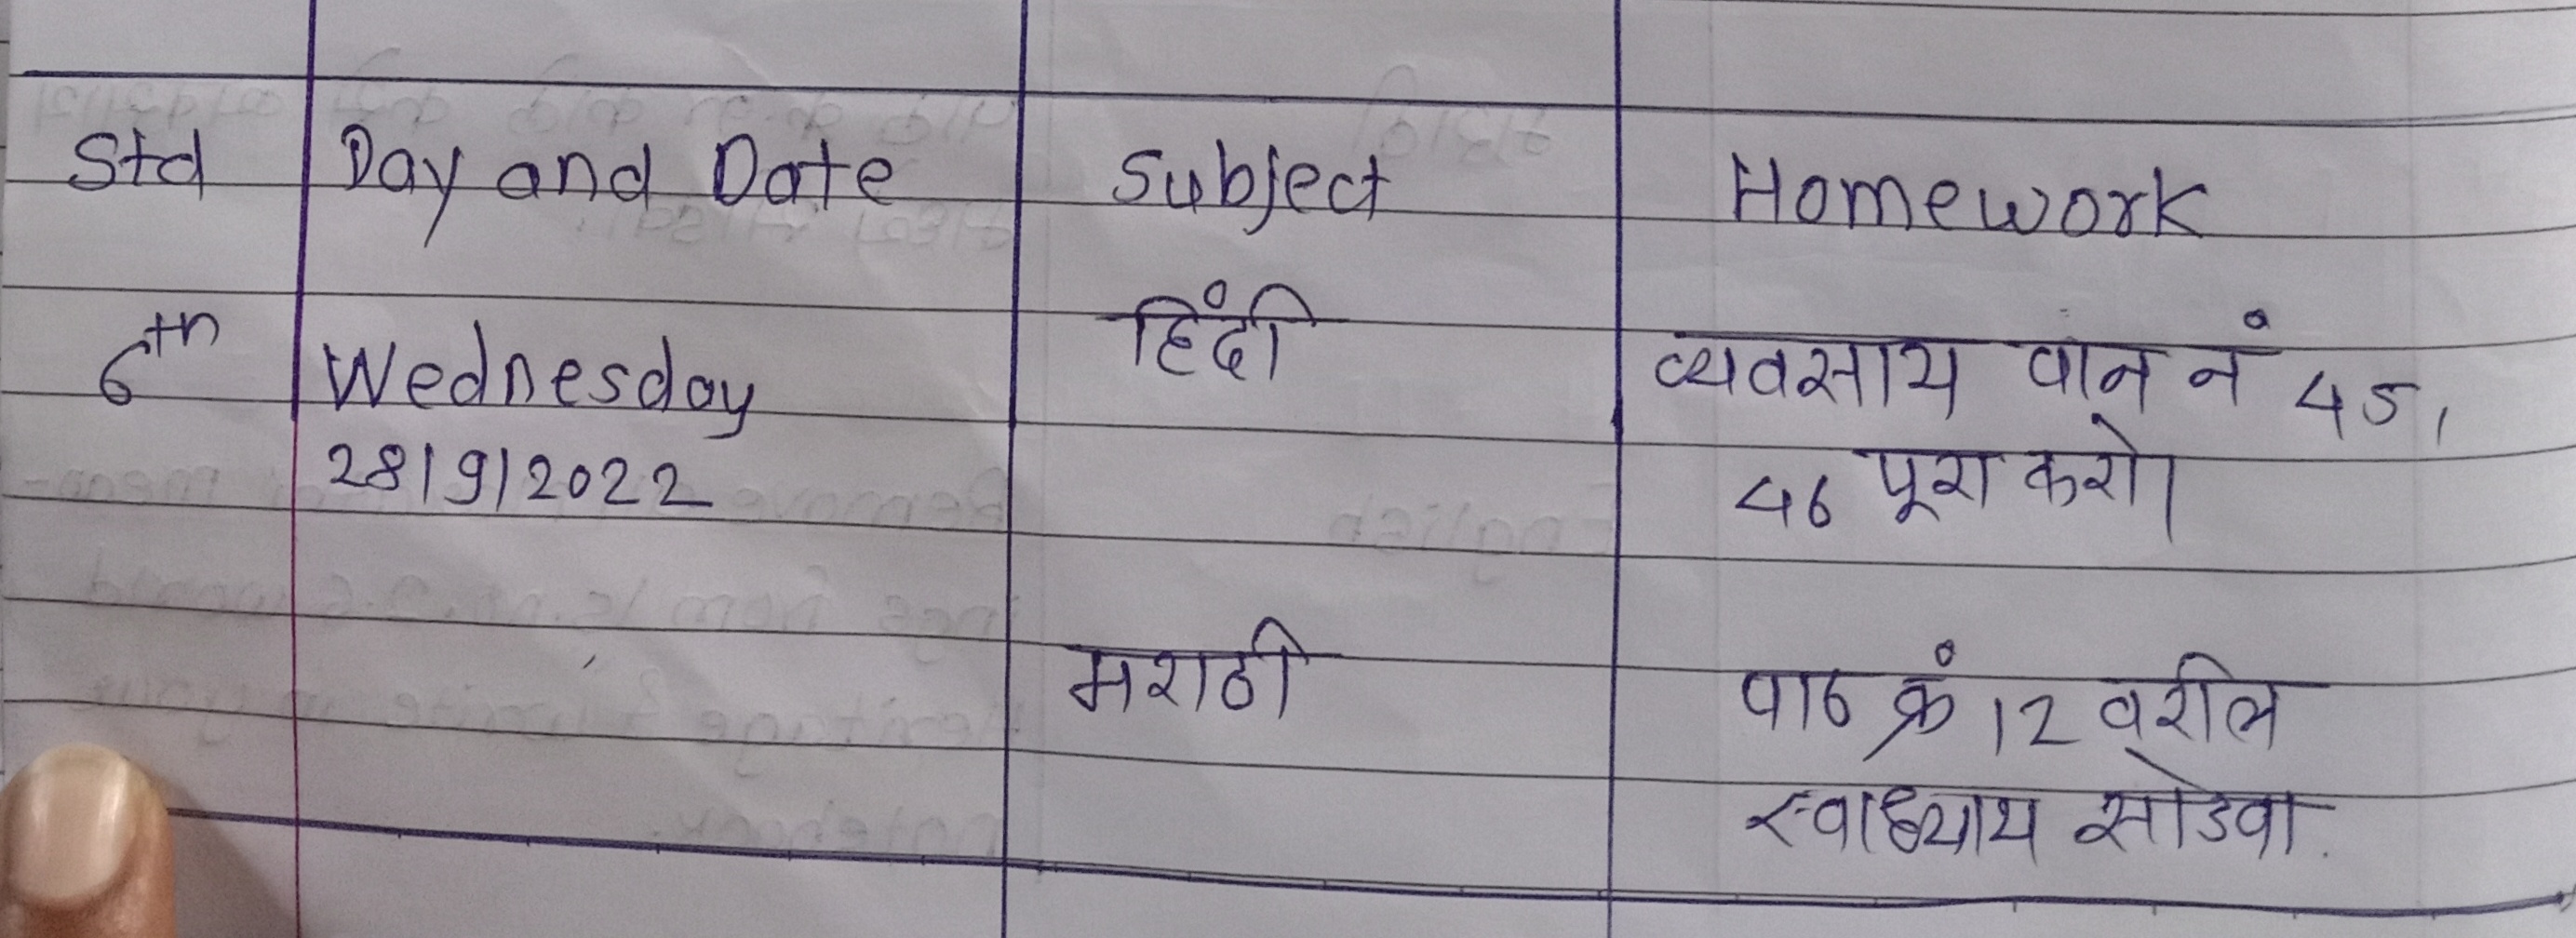 Std Day and Date Subject Homework
6th Wednesday हिंदी व्यवसाय पान नं 45,
28/9/2022 46 पूरा करो।
मराठी पाठ क्रं 12 वरील
स्वाध्याय सोडवा.